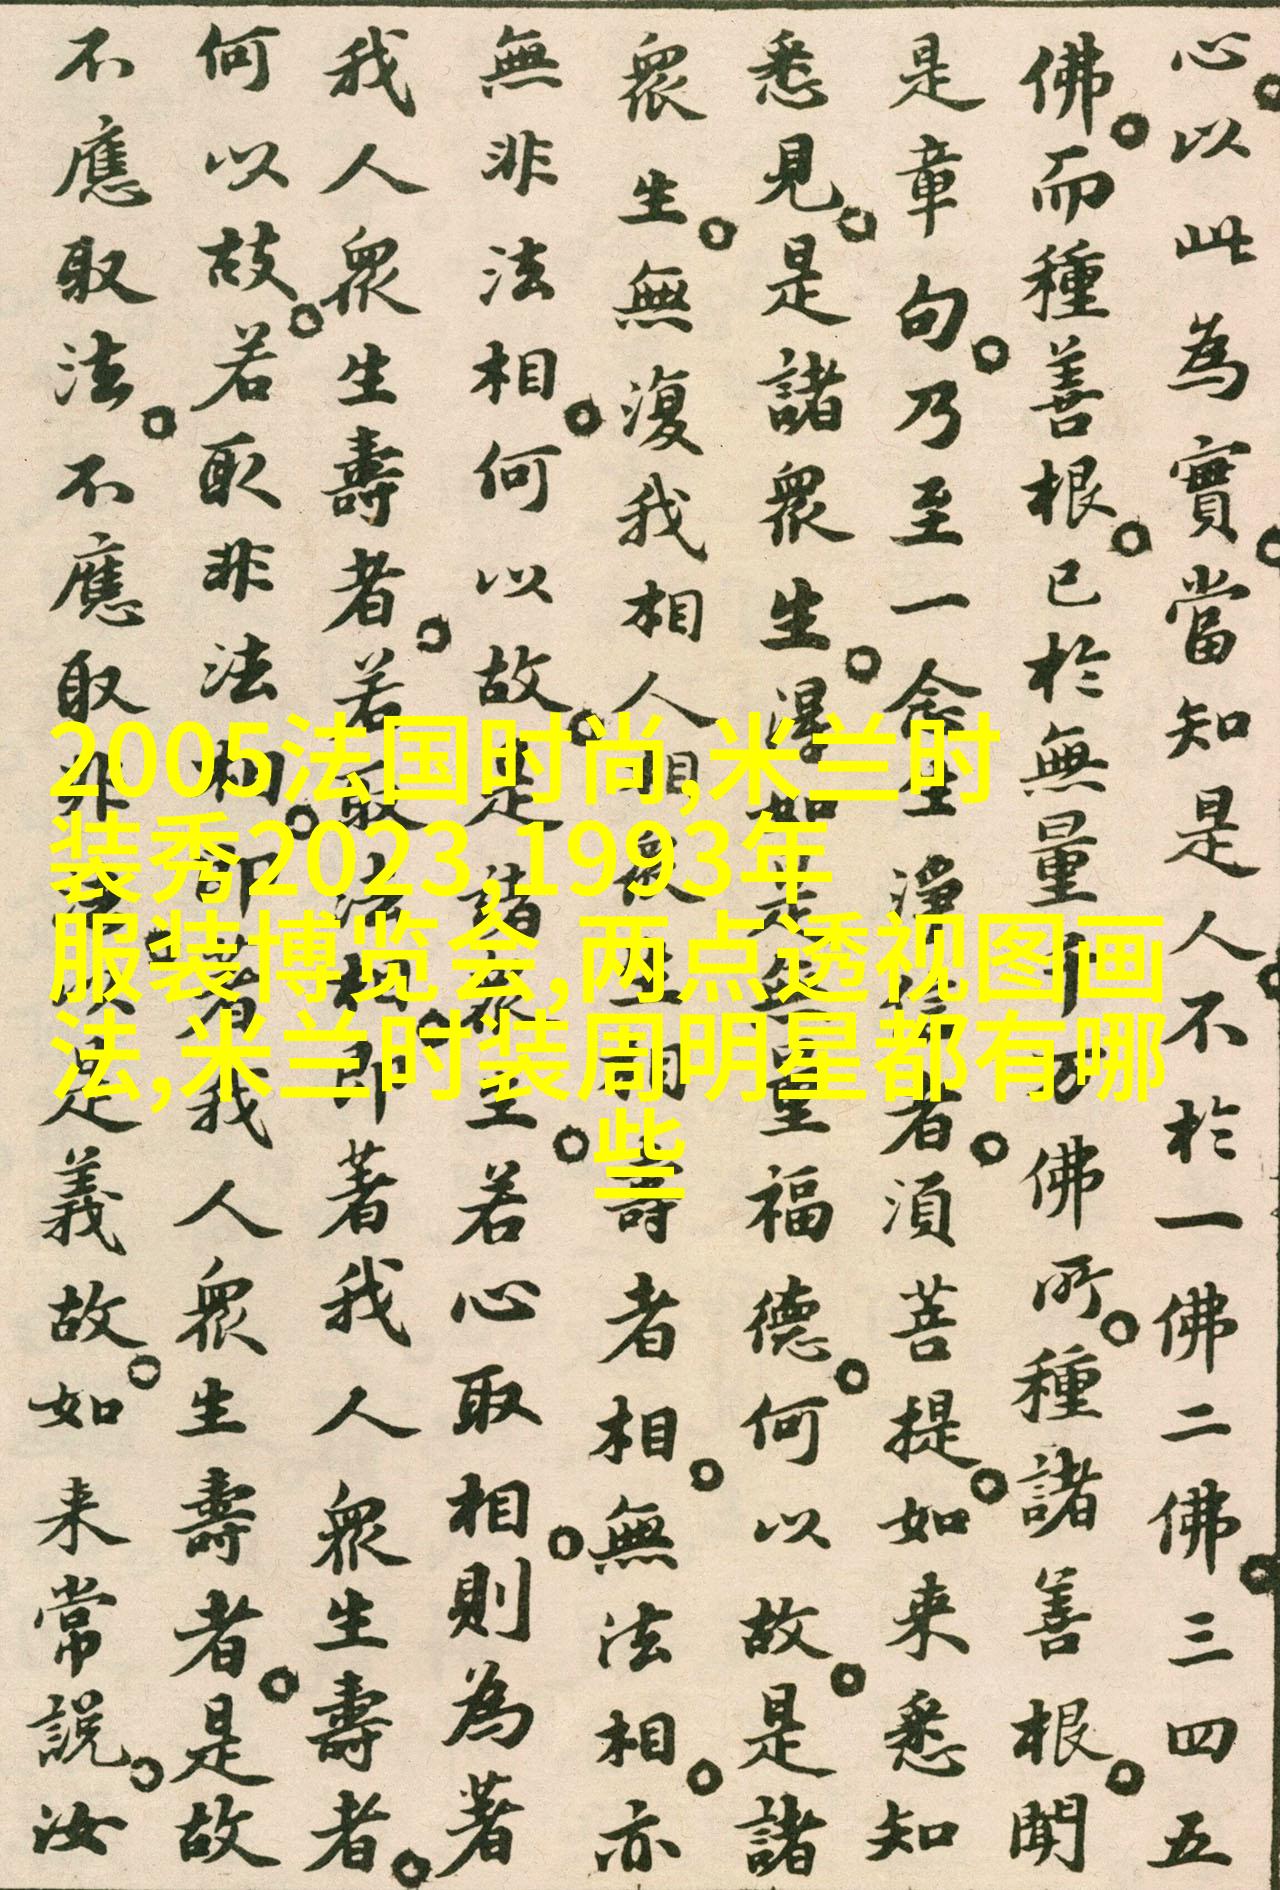 心。以此為實。當知是人。不於一佛二佛。三四五
佛。而種善根。已於無量千万佛所。種諸善根。聞
是章句。乃至一念生淨信者。須菩提。如来悉知
悉見。是諸眾生。得如是無量福德。何以故。是諸
眾生。無復我相人相眾生相壽者相。無法相。亦
無非法相。何以故。是諸眾生。若心取相。則為著
我人眾生壽者。若取法相。即著我人眾生壽者。
何以故。若取非法相。即著我人眾生壽者。是故
不應取法。不應取非法。以是義故。如来常說。汝
2005法国时尚,米兰时
装秀2023,1993年
服装博览会,两点透视图画
法,米兰时装周明星都有哪
些